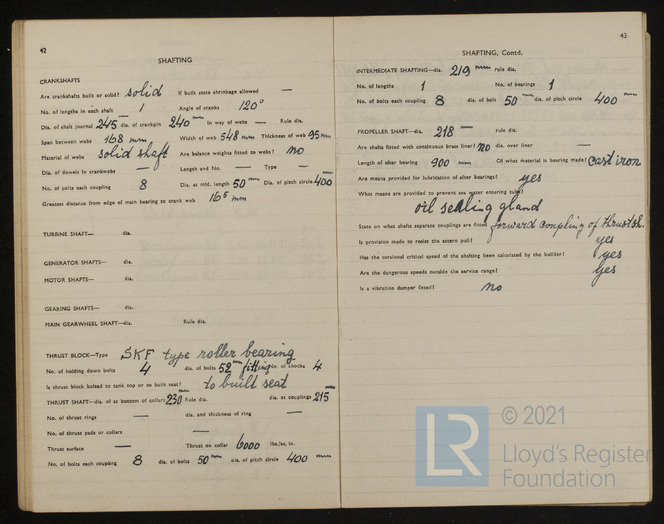 42
SHAFTING
CRANKSHAFTS
Are crankshafts built or solid? solid If built state shrinkage allowed —
No. of lengths in each shaft 1 Angle of cranks 120°
Dia. of shaft journal 245 dia. of crankpin 240 mm In way of webs — Rule dia.
Span between webs 168 mm Width of web 548 mm Thickness of web 95 mm
Material of webs solid shaft Are balance weights fitted to webs? no
Dia. of dowels in crankwebs — Length and No. — Type —
No. of bolts each coupling 8 Dia. at mid. length 50 mm Dia. of pitch circle 400
Greatest distance from edge of main bearing to crank web 165 mm
TURBINE SHAFT— dia.
GENERATOR SHAFTS— dia.
MOTOR SHAFTS— dia.
GEARING SHAFTS— dia.
MAIN GEARWHEEL SHAFT—dia. Rule dia.
THRUST BLOCK—Type SKF type roller bearing
No. of holding down bolts 4 dia. of bolts 52 mm fitting No. of chocks 4
Is thrust block bolted to tank top or to built seat? to built seat
THRUST SHAFT—dia. of at bottom of collars 230 mm Rule dia. dia. at couplings 215 mm
No. of thrust rings — dia. and thickness of ring —
No. of thrust pads or collars —
Thrust surface — Thrust on collar 6000 lbs./sq. in.
No. of bolts each coupling 8 dia. of bolts 50 mm dia. of pitch circle 400 mm
43
SHAFTING, Contd.
INTERMEDIATE SHAFTING—dia. 219 mm rule dia.
No. of lengths 1 No. of bearings 1
No. of bolts each coupling 8 dia. of bolt 50 mm dia. of pitch circle 400 mm
PROPELLER SHAFT—dia. 218 mm rule dia.
Are shafts fitted with continuous brass liner? no dia. over liner —
Length of after bearing 900 mm Of what material is bearing made? cast iron
Are means provided for lubrication of after bearings? yes
What means are provided to prevent sea water entering tube?
oil sealing gland
State on what shafts separate couplings are fitted forward coupling of thrust sh.
Is provision made to resist the astern pull? yes
Has the torsional critical speed of the shafting been calculated by the builder? yes
Are the dangerous speeds outside the service range? yes
Is a vibration damper fitted? no
LR
© 2021
Lloyd's Register
Foundation